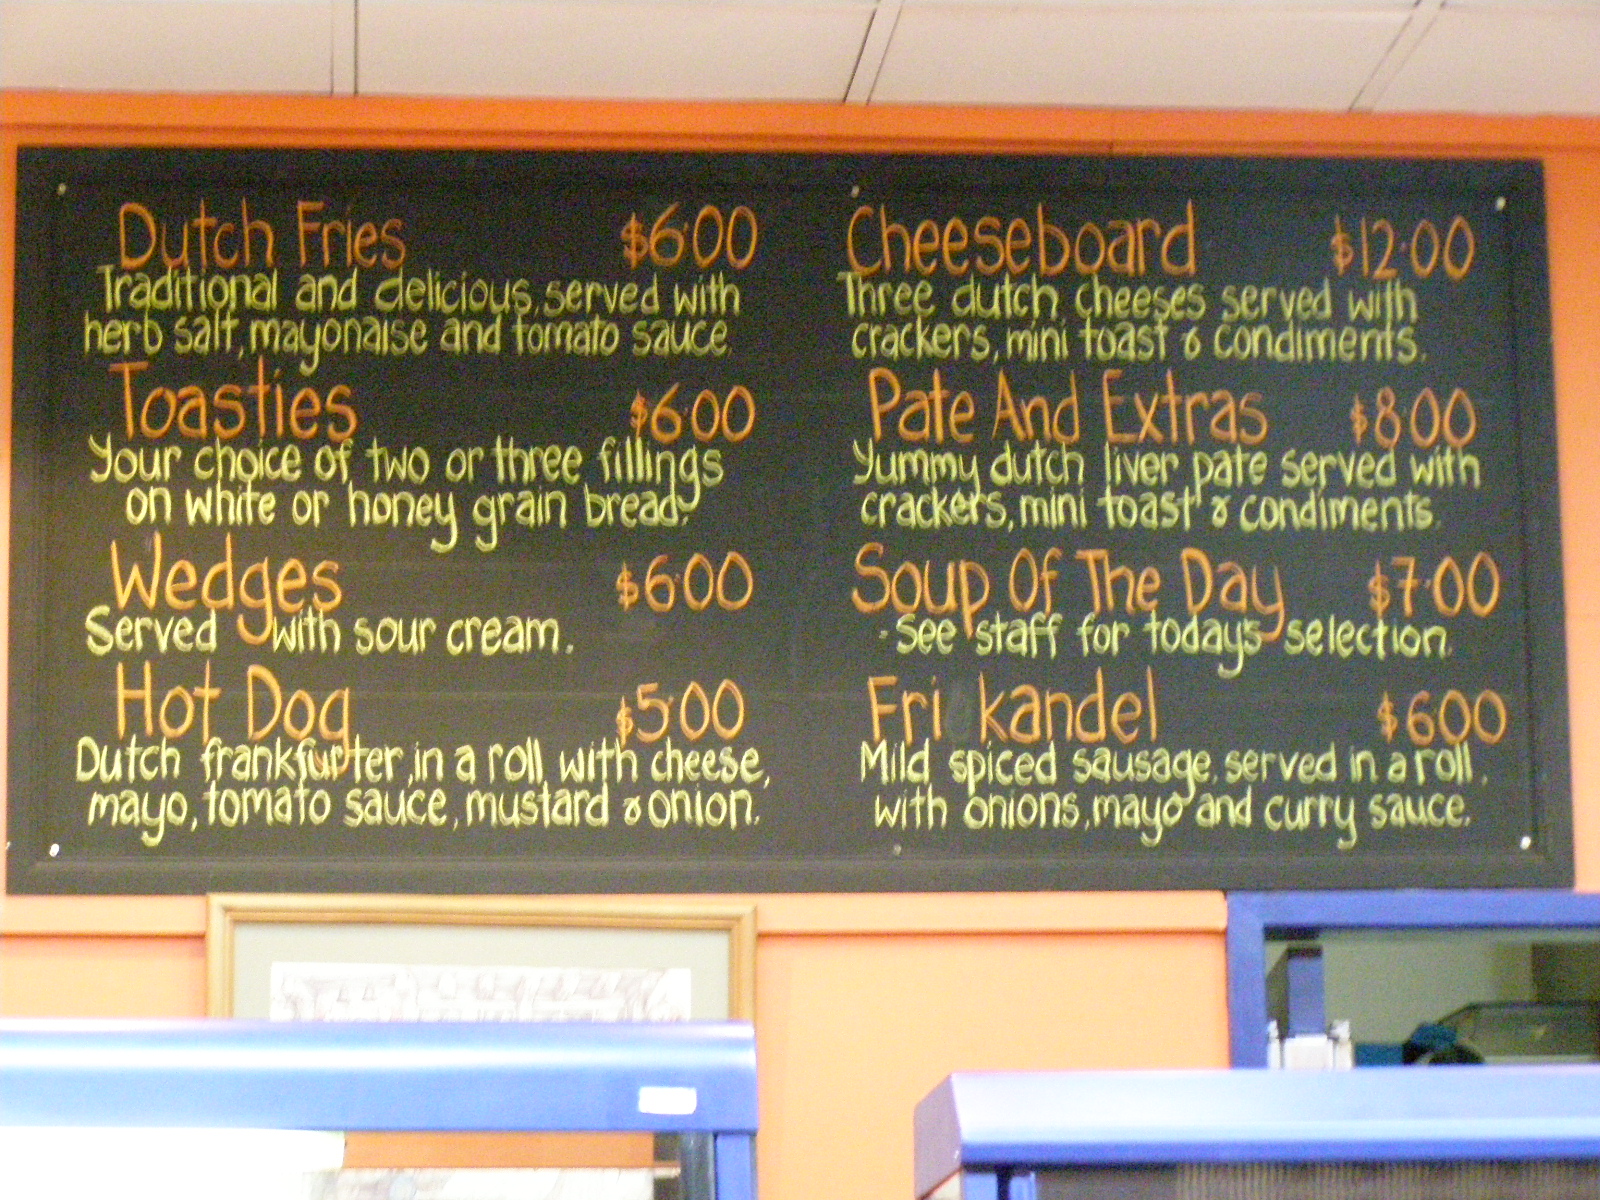 Dutch Fries $6.00
Traditional and delicious, served with
herb salt, mayonaise and tomato sauce.
Toasties $6.00
Your choice of two or three fillings
on white or honey grain bread.
Wedges $6.00
Served with sour cream.
Hot Dog $5.00
Dutch frankfurter, in a roll, with cheese,
mayo, tomato sauce, mustard & onion.
Cheeseboard $12.00
Three dutch cheeses served with
crackers, mini toast & condiments.
Pate And Extras $8.00
Yummy dutch liver pate served with
crackers, mini toast & condiments.
Soup Of The Day $7.00
- See staff for today's selection.
Fri kandel $6.00
Mild spiced sausage, served in a roll,
with onions, mayo and curry sauce.